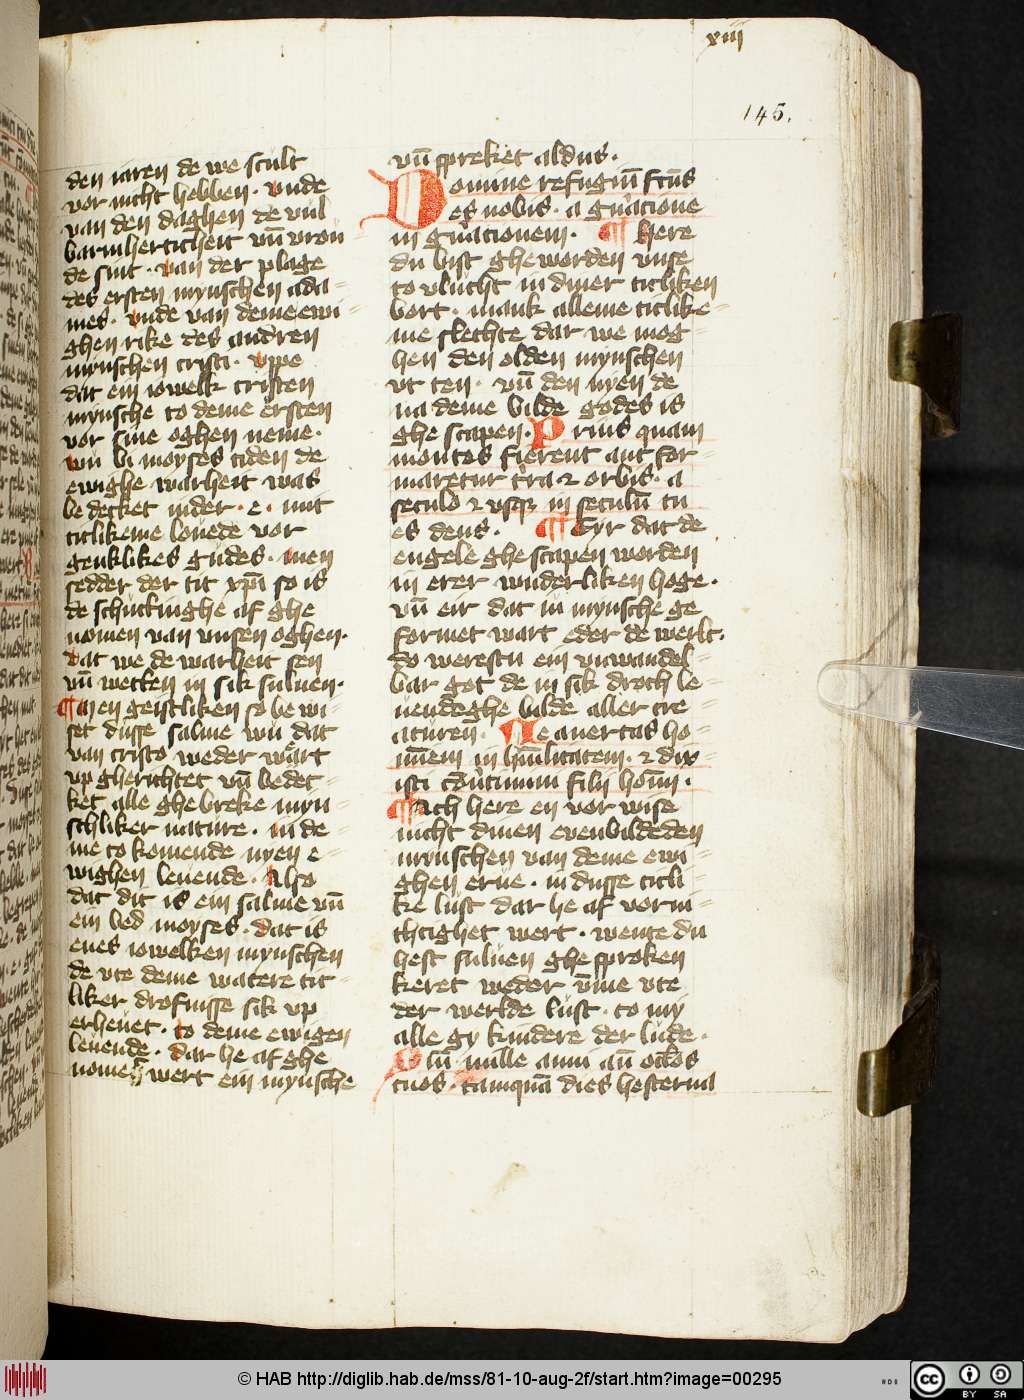 xiii
145.
den iaren de we scult
vor nicht hebben · vnde
van den daghen de vul
barmherticheit vn̄ vrou
de sint · van der plage
des ersten mynschen ada-
mes · vnde van deme ewi-
ghen rike des andren
mynschen cristi · vppe
dat ein iowelk cristen
mynsche to deme ersten
vor sine oghen neme ·
wn̄ bi moyses tiden de
ewighe warheit was
be decket inder · e · mit
titlikeme leuede vor
genklikes gudes · men
sedder der tit xp̄i so is
de schuckinghe af ghe
nomen van vnsen oghen ·
dat we de warheit sen
vn̄ wecken in sik suluen ·
¶ men geistliken so be wi-
set dusse salme wu dat
van cristo weder wart
vp gherichtet vn̄ bedec-
ket alle ghe breke myn-
schliker nature · in de-
me to komende nyen e-
wighen leuende · Also
dat dit is ein salme vn̄
ein bed moyses · dat is
enes iowelken mynschen
de vte deme watere tit-
liker drofnisse sik vp
erheuet · to deme ewigen
leuende · dar he af ghe
nomen wert ein mynsche
vn̄ spreket aldus ·
Domine refugiū fc̄us
es nobis · a gn̄acione
in gn̄acionem · ¶ Here
du bist gheworden vnse
to vlucht in diner titliken
bort · mank alleme titlike-
me slechte dar we mog-
hen den olden mynschen
vt ten · vn̄ den nyen de
na deme bilde godes is
ghe scapen · Prius quam
montes fierent aut for-
maretur tr̄a ⁊ orbis · a
seculo ⁊ vsq̄ in seculū tu
es deus · ¶ Eyr dat de
engele ghe scapen worden
in erer wnderliken hoge ·
vn̄ eir dat in mynsche ge
formet wart eder de werlt ·
do werestu ein vnwandel-
bar got de in sik droch le-
uendeghe bilde aller cre-
aturen · Ne auertas ho-
minem in hūilitatem · ⁊ dix-
isti conuertimini filii hom̄ ·
¶ Ach here en vor wise
nicht dinen euenbildeden
mynschen van deme ewi-
ghen erue · in dusse titli-
ke lust dar he af vorni-
chtighet wert · wente du
hest suluen ghe sproken
keret weder v̄me vte
der werlde lust · to my
alle gy kindere der lude ·
Qm̄ mille anni an̄ oc̄los
tuos · tamquā dies hesterna
© HAB http://diglib.hab.de/mss/81-10-aug-2f/start.htm?image=00295
cc BY SA